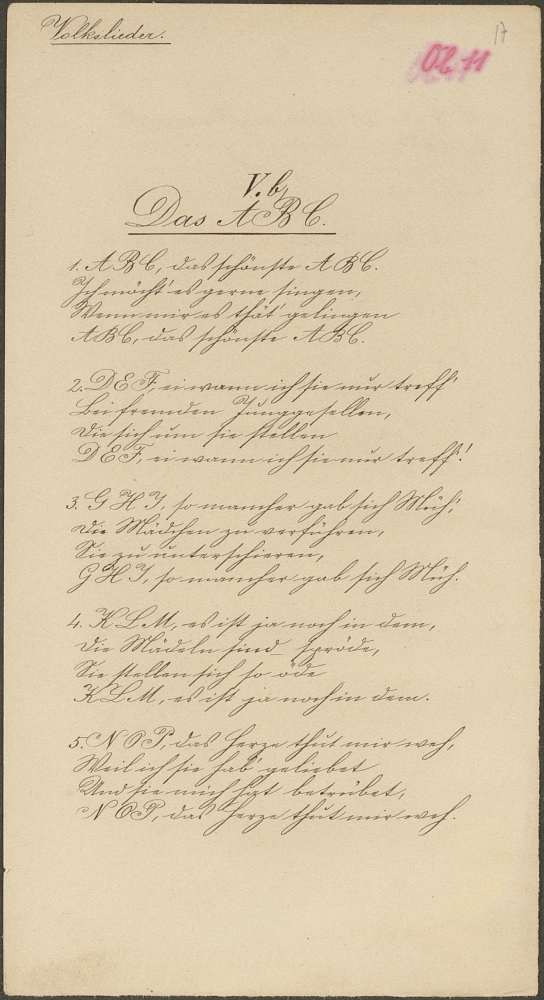 Volkslieder.
17
02 11
V. b,
Das A B C.
1. A B C, das schönste A B C.
Ich möcht' es gerne singen,
Wenn mir es thät' gelingen
A B C, das schönste A B C.
2. D E F, ei wann ich sie nur treff'
Bei fremden Junggesellen,
Die sich um sie stellen
D E F, ei wann ich sie nur treff'!
3. G H I, so mancher gab sich Müh',
Die Mädchen zu verführen,
Sie zu
G H I, so mancher gab sich Müh.
4. K L M, es ist ja noch in dem,
Die Mädeln sind spröde,
Sie stellen sich so öde
K L M, es ist ja noch in dem.
5. N O P, das Herze thut mir weh,
Weil ich sie hab' geliebet
Und sie mich hat betrübet,
N O P, das Herze thut mir weh.